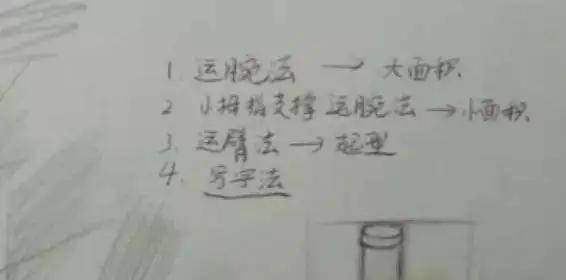 1. 运腕法 → 大面积
2 小拇指支撑运腕法 → 小面积
3. 运臂法 → 起型
4. 写字法